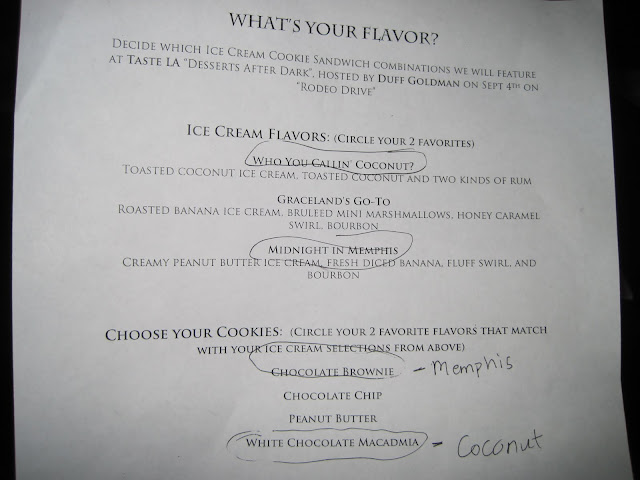 WHAT'S YOUR FLAVOR?
DECIDE WHICH ICE CREAM COOKIE SANDWICH COMBINATIONS WE WILL FEATURE
AT TASTE LA "DESSERTS AFTER DARK", HOSTED BY DUFF GOLDMAN ON SEPT 4TH ON
"RODEO DRIVE"
ICE CREAM FLAVORS: (CIRCLE YOUR 2 FAVORITES)
WHO YOU CALLIN' COCONUT?
TOASTED COCONUT ICE CREAM, TOASTED COCONUT AND TWO KINDS OF RUM
GRACELAND'S GO-TO
ROASTED BANANA ICE CREAM, BRULEED MINI MARSHMALLOWS, HONEY CARAMEL
SWIRL, BOURBON
MIDNIGHT IN MEMPHIS
CREAMY PEANUT BUTTER ICE CREAM, FRESH DICED BANANA, FLUFF SWIRL, AND
BOURBON
CHOOSE YOUR COOKIES: (CIRCLE YOUR 2 FAVORITE FLAVORS THAT MATCH
WITH YOUR ICE CREAM SELECTIONS FROM ABOVE)
CHOCOLATE BROWNIE - Memphis
CHOCOLATE CHIP
PEANUT BUTTER
WHITE CHOCOLATE MACADMIA - Coconut